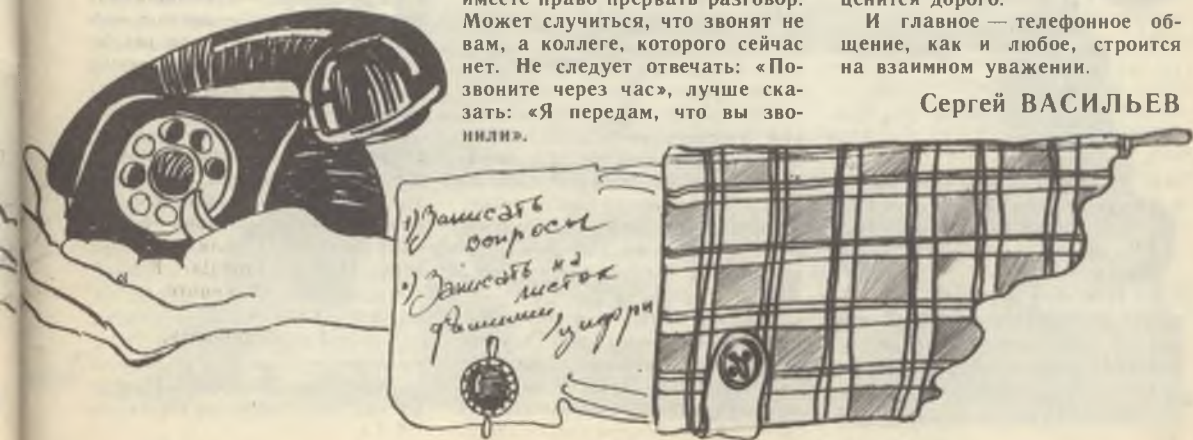 имеете право прервать разговор.
Может случиться, что звонят не
вам, а коллеге, которого сейчас
нет. Не следует отвечать: «По-
звоните через час», лучше ска-
зать: «Я передам, что вы зво-
нили».
ценится дорого.
И главное — телефонное об-
щение, как и любое, строится
на взаимном уважении.
Сергей ВАСИЛЬЕВ
1) Записать
вопросы
Записать на
листок
фамилии, цифры